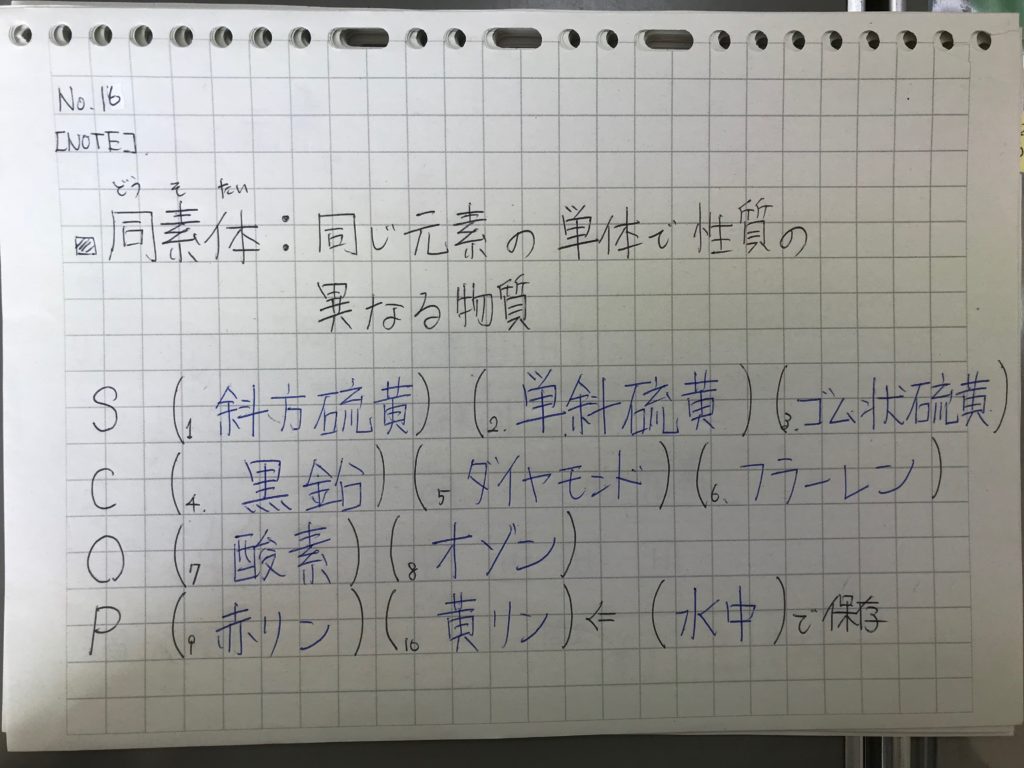 No.16
[NOTE].
どうそたい
同素体：同じ元素の単体で性質の
異なる物質
S (1. 斜方硫黄) (2. 単斜硫黄) (3. ゴム状硫黄)
C (4. 黒鉛) (5 ダイヤモンド) (6. フラーレン)
O (7 酸素) (8 オゾン)
P (9 赤リン) (10. 黄リン) ⇐ (水中)で保存